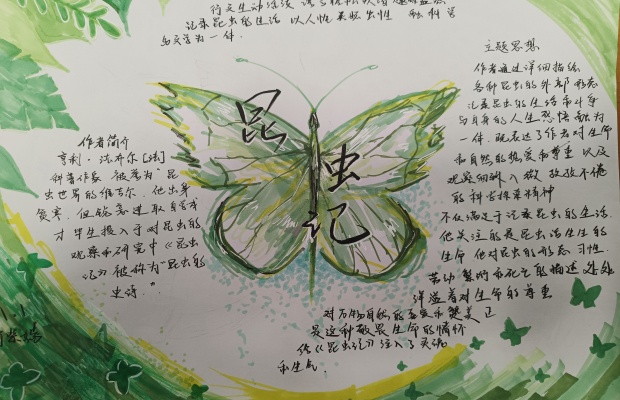 记录昆虫的生活 以人性 融科学
与文学为一体.
昆
虫
记
作者简介
亨利·法布尔[法]
科普作家 被誉为"昆
虫世界的维吉尔. 他出身
贫寒. 但锐意进取 自学成
才 毕生投入于对昆虫的
观察和研究中《昆虫
记》被称为"昆虫的
史诗."
主题思想
作者通过详细描绘
各种昆虫的外部形态
记录昆虫的生活和斗争
与自身的人生感悟融为
一体. 既表达了作者对生命
和自然的热爱和尊重 以及
观察细腻入微 孜孜不倦
的科学探索精神
不仅满足于记录昆虫的生活.
他关注的是昆虫活生生的
生命 他对昆虫的形态 习性.
劳动 繁衍和死亡的描述 处处
洋溢着对生命的尊重
对万物自然的 赞美 正
是这种敬畏生命的情怀
给《昆虫记》注入了灵魂
和生气.